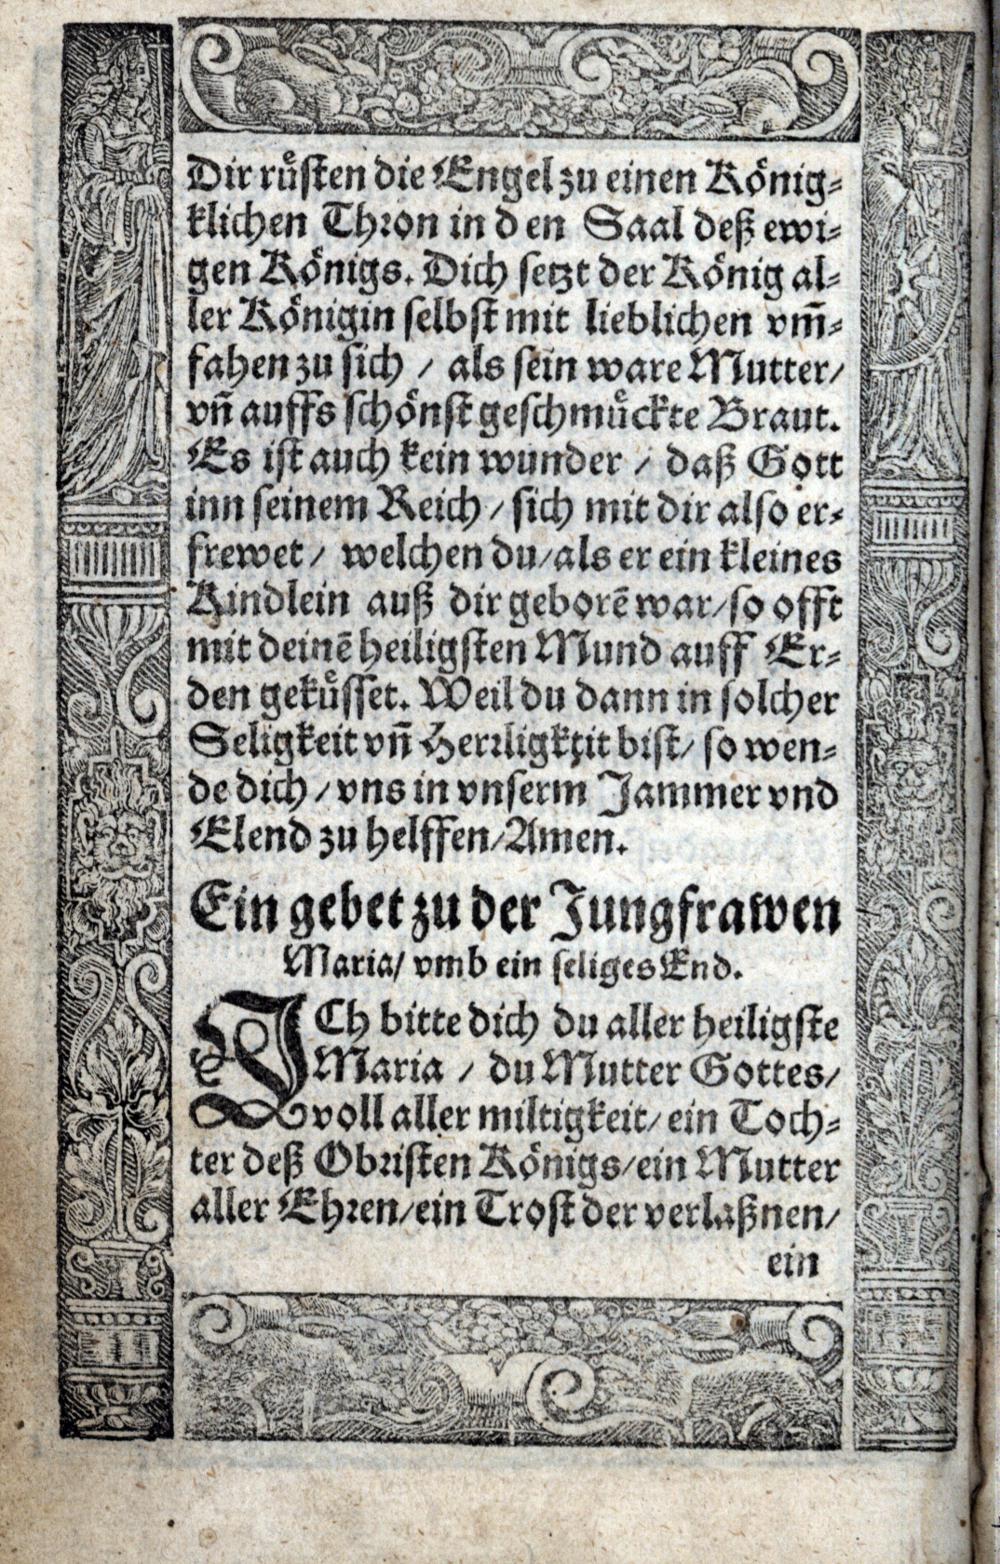 Dir ruͤsten die Engel zu einen Koͤnig⸗
klichen Thron in den Saal deß ewi⸗
gen Koͤnigs. Dich setzt der Koͤnig al⸗
ler Koͤnigin selbst mit lieblichen vm̄⸗
fahen zu sich / als sein ware Mutter/
vn̄ auffs schoͤnst geschmuͤckte Braut.
Es ist auch kein wunder / daß Gott
inn seinem Reich / sich mit dir also er⸗
frewet / welchen du/als er ein kleines
Kindlein auß dir geborē war/so offt
mit deinē heiligsten Mund auff Er⸗
den gekuͤsset. Weil du dann in solcher
Seligkeit vn̄ Herrligkeit bist/ so wen⸗
de dich / vns in vnserm Jammer vnd
Elend zu helffen/Amen.
Ein gebet zu der Jungfrawen
Maria/ vmb ein seliges End.
ICh bitte dich du aller heiligste
Maria / du Mutter Gottes/
voll aller miltigkeit/ein Toch⸗
ter deß Obristen Koͤnigs/ein Mutter
aller Ehren/ein Trost der verlaßnen/
ein